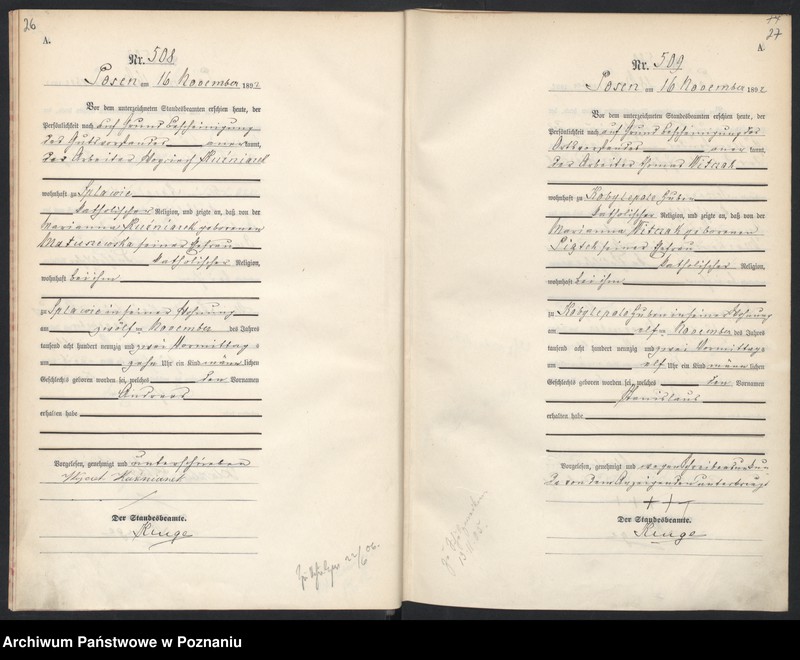 26
A.
Nr. 508
Posen am 16 November 1892
Vor dem unterzeichneten Standesbeamten erschien heute, der
Persönlichkeit nach auf Grund Bescheinigung
des Gutsvorstandes anerkannt,
der Arbeiter Wojciech Kuźniarek
wohnhaft zu Splawie
katholischer Religion, und zeigte an, daß von der
Marianna Kuźniarek geborenen
Matuszewska seiner Ehefrau
katholischer Religion,
wohnhaft bei ihm
zu Splawie in seiner Wohnung
am zwölften November des Jahres
tausend acht hundert neunzig und zwei Vormittags
um zehn Uhr ein Kind männlichen
Geschlechts geboren worden sei, welches den Vornamen
Andreas
erhalten habe
Vorgelesen, genehmigt und unterschrieben
Kuźniarek
Der Standesbeamte.
Kruge
22/6 06.
27
A
Nr. 509
Posen am 16 November 1892
Vor dem unterzeichneten Standesbeamten erschien heute, der
Persönlichkeit nach auf Grund Bescheinigung des
Ortsvorstandes anerkannt,
der Arbeiter Thomas Witczak
wohnhaft zu Kobylepole Huben
katholischer Religion, und zeigte an, daß von der
Marianna Witczak geborenen
Piątek seiner Ehefrau
katholischer Religion,
wohnhaft bei ihm
zu Kobylepole Huben in seiner Wohnung
am elften November des Jahres
tausend acht hundert neunzig und zwei Vormittags
um elf Uhr ein Kind männlichen
Geschlechts geboren worden sei, welches den Vornamen
Stanislaus
erhalten habe
Vorgelesen, genehmigt und wegen Schreibensunkun
de von dem Anzeigenden unterkreuzt
+++
Der Standesbeamte.
Kruge
Archiwum Państwowe w Poznaniu